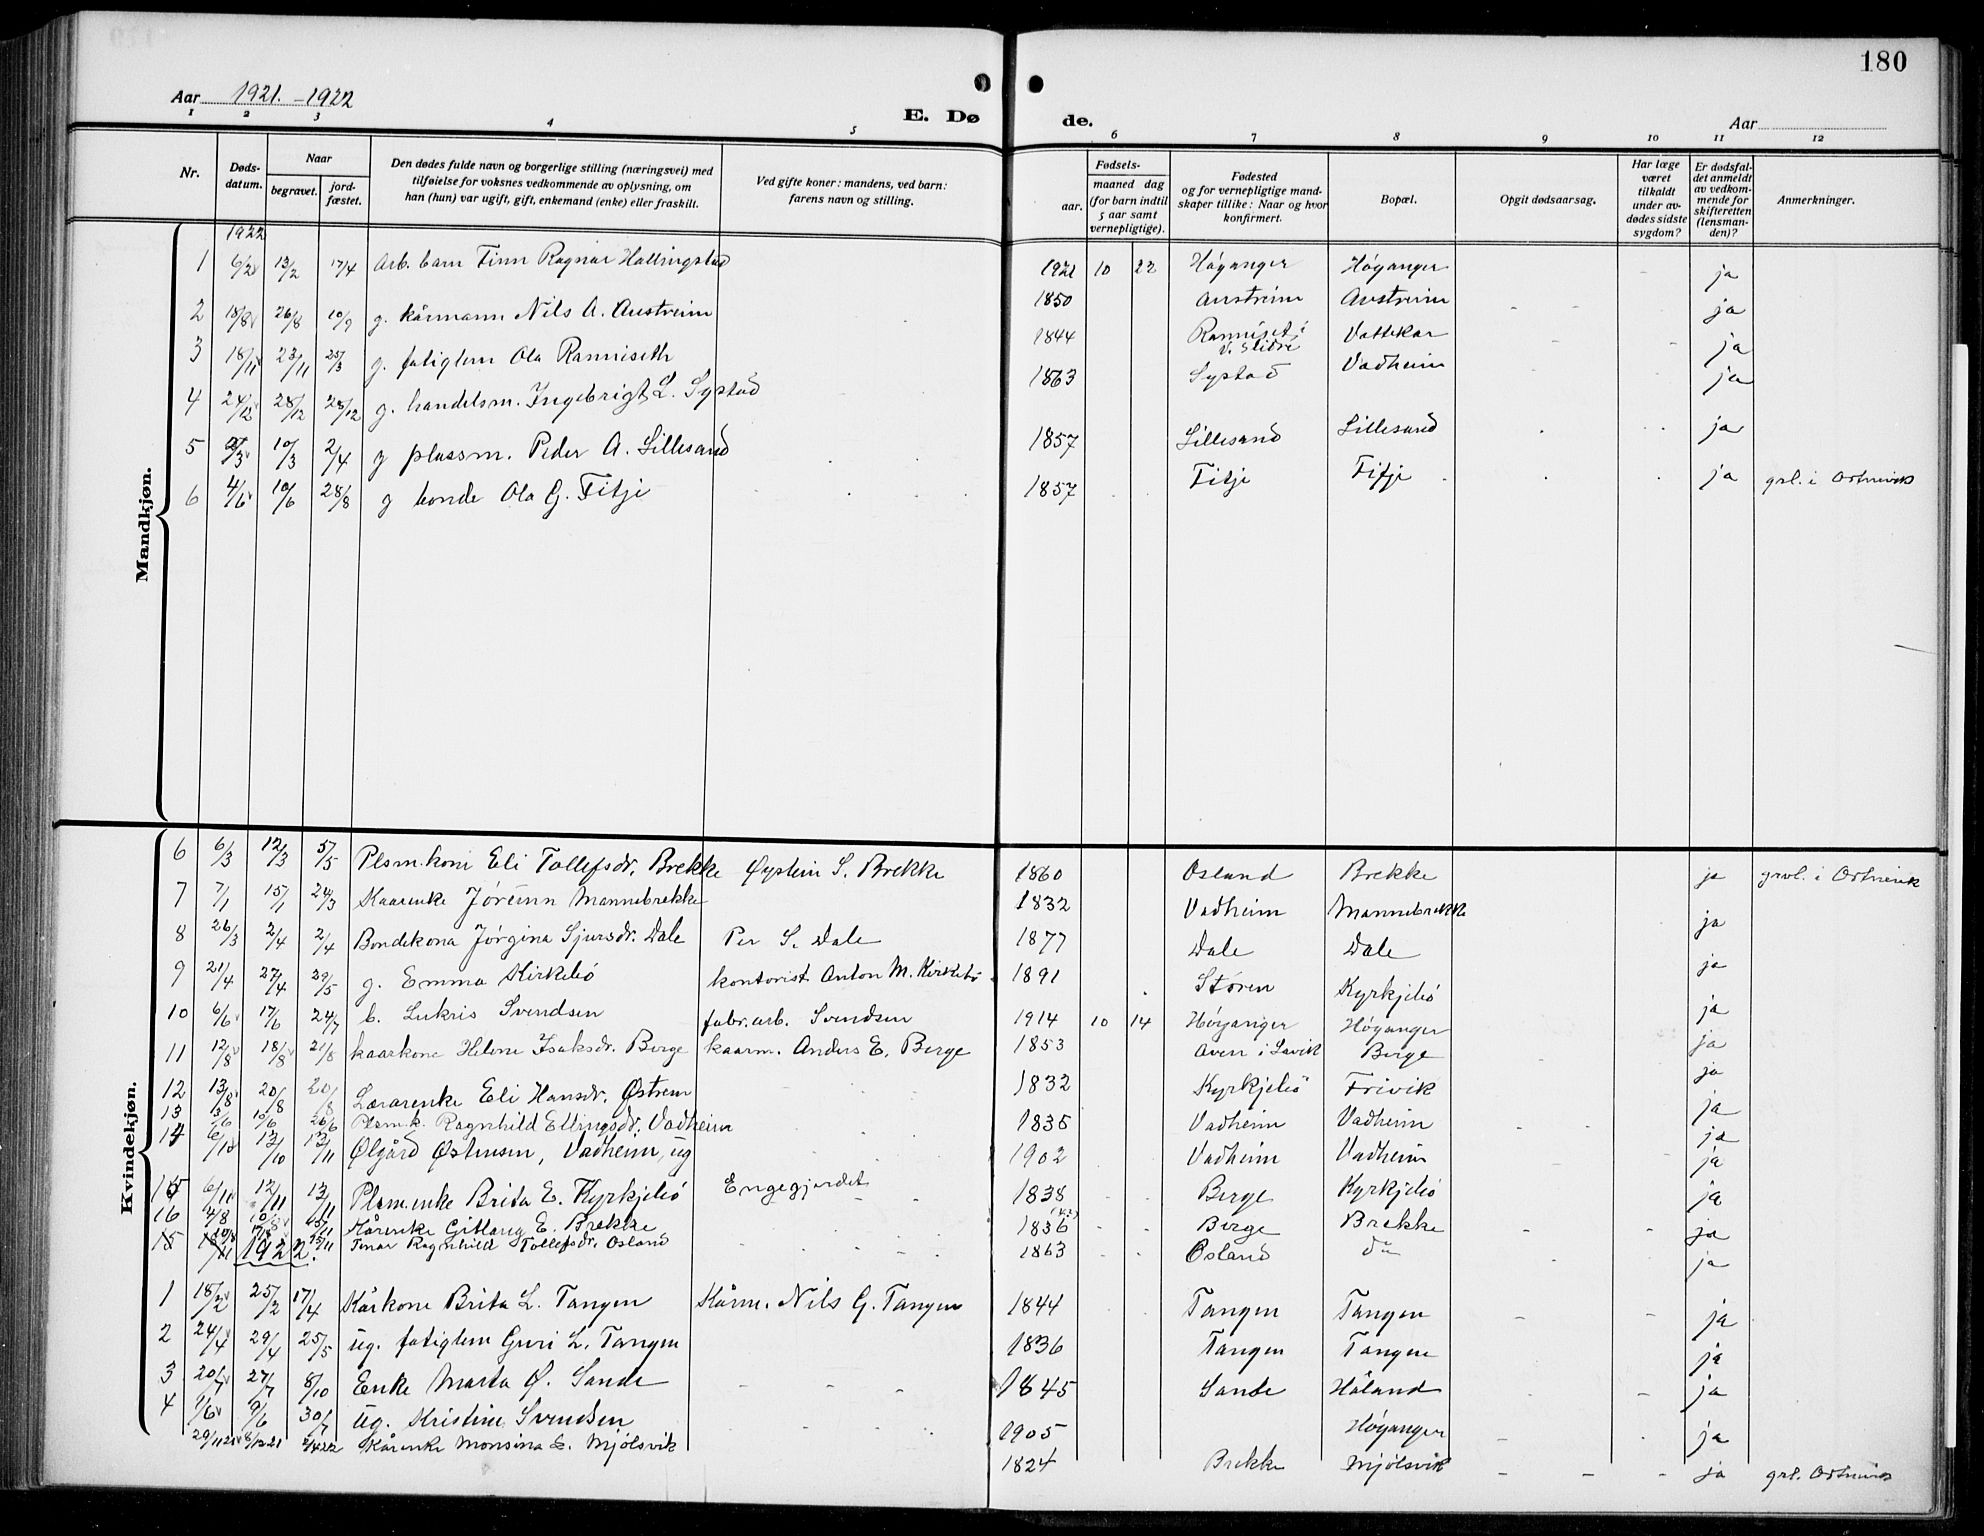 180
Aar 1921.-1922
E. Dø de.
Aar
1 2 3 4 5 6 7 8 9 10 11 12
Nr.
Døds-
datum.
Naar
begravet.
jord-
fæstet.
Den dødes fulde navn og borgerlige stilling (næringsvei) med
tilføielse for voksnes vedkommende av oplysning, om
han (hun) var ugift, gift, enkemand (enke) eller fraskilt.
Ved gifte koner: mandens, ved barn:
farens navn og stilling.
Fødsels-
aar.
maaned dag
(for barn indtil
5 aar samt
vernepligtige).
Fødested
og for vernepligtige mand-
skaper tillike: Naar og hvor
konfirmert.
Bopæl.
Opgit dødsaarsag.
Har læge
været
tilkaldt
under av-
dødes sidste
sygdom?
Er dødsfal-
det anmeldt
av vedkom-
mende for
skifteretten
(lensman-
den)?
Anmerkninger.
Mandkjøn.
1922
1 6/2 13/2 17/4 Arb. barn Finn Ragnar Hallingstad 1921 10 22 Høyanger Høyanger ja
2 18/8 26/8 10/9 g. kårmann Nils A. Austreim 1850 Austreim Austreim ja
3 18/11 23/11 25/3 g. fatiglem Ola Ranniseth 1844 Ranniset i V. Slidre Vattekar ja
4 24/12 28/12 28/12 g. handelsm. Ingebrigt L. Systad 1863 Systad Vadheim ja
5 /3 10/3 2/4 g plassm. Peder A. Lillesand 1857 Lillesand Lillesand ja
6 4/6 10/6 28/8 g bonde Ola G. Fitje 1857 Fitje Fitje ja grl. i Ortnevik
Kvindekjøn.
6 6/3 12/3 5/5 Plsm.kone Eli Tollefsdr. Brekke Øystein S. Brekke 1860 Osland Brekke ja grvl. i Ortnevik
7 7/1 15/1 24/3 Kaarenke Jøreinn Mannebrekke 1832 Vadheim Mannebrekke ja
8 26/3 2/4 2/4 Bondekona Jørgina Sjursdr. Dale Per S. Dale 1877 Dale Dale ja
9 21/4 27/4 29/5 g. Emma Kirkebø kontorist Anton M. Kirkebø 1891 Støren Kyrkjebø ja
10 6/6 17/6 24/7 b. Lukris Svendsen fabr.arb. Svendsen 1914 10 14 Høyanger Høyanger ja
11 12/8 18/8 21/8 kaarkone Helene Isaksdr. Berge kaarm. Anders E. Berge 1853 Aven i Lavik Berge ja
12 13/8 20/8 20/8 Lærarenke Eli Hansdr. Østrem 1832 Kyrkjebø Frivik ja
13 13/6 19/6 26/6 Plsm.k. Ragnhild Ellingsdr. Vadheim 1835 Vadheim Vadheim ja
14 6/10 13/10 13/11 Ølgård Østensen, Vadheim, ug 1902 Vadheim Vadheim ja
15 6/11 12/11 13/11 Plsm.enke Brita E. Kyrkjebø Engegjerdet 1838 Berge Kyrkjebø ja
16 4/8 10/8 15/11 Kårenke Gitlaug E. Brekke 1836 Berge Brekke ja
15 17/8 15/11 Tenar Ragnhild Tollefsdr. Osland 1863 Osland do ja
1922.
1 18/2 25/2 17/4 Kårkone Brita L. Tangen Kårm. Nils G. Tangen 1844 Tangen Tangen ja
2 24/4 29/4 25/5 ug. fatiglem Guri L. Tangen 1836 Tangen Tangen ja
3 20/7 27/7 8/10 Enke Marta Ø. Sande 1845 Sande Håland ja
4 1/6 9/6 30/7 ug. Kristine Svendsen 1905 Høyanger ja
29/11 21 8/12 21 2/4 22 Kårenke Monsina E. Mjølsvik 1824 Brekke Mjølsvik ja grl. Ortnevik